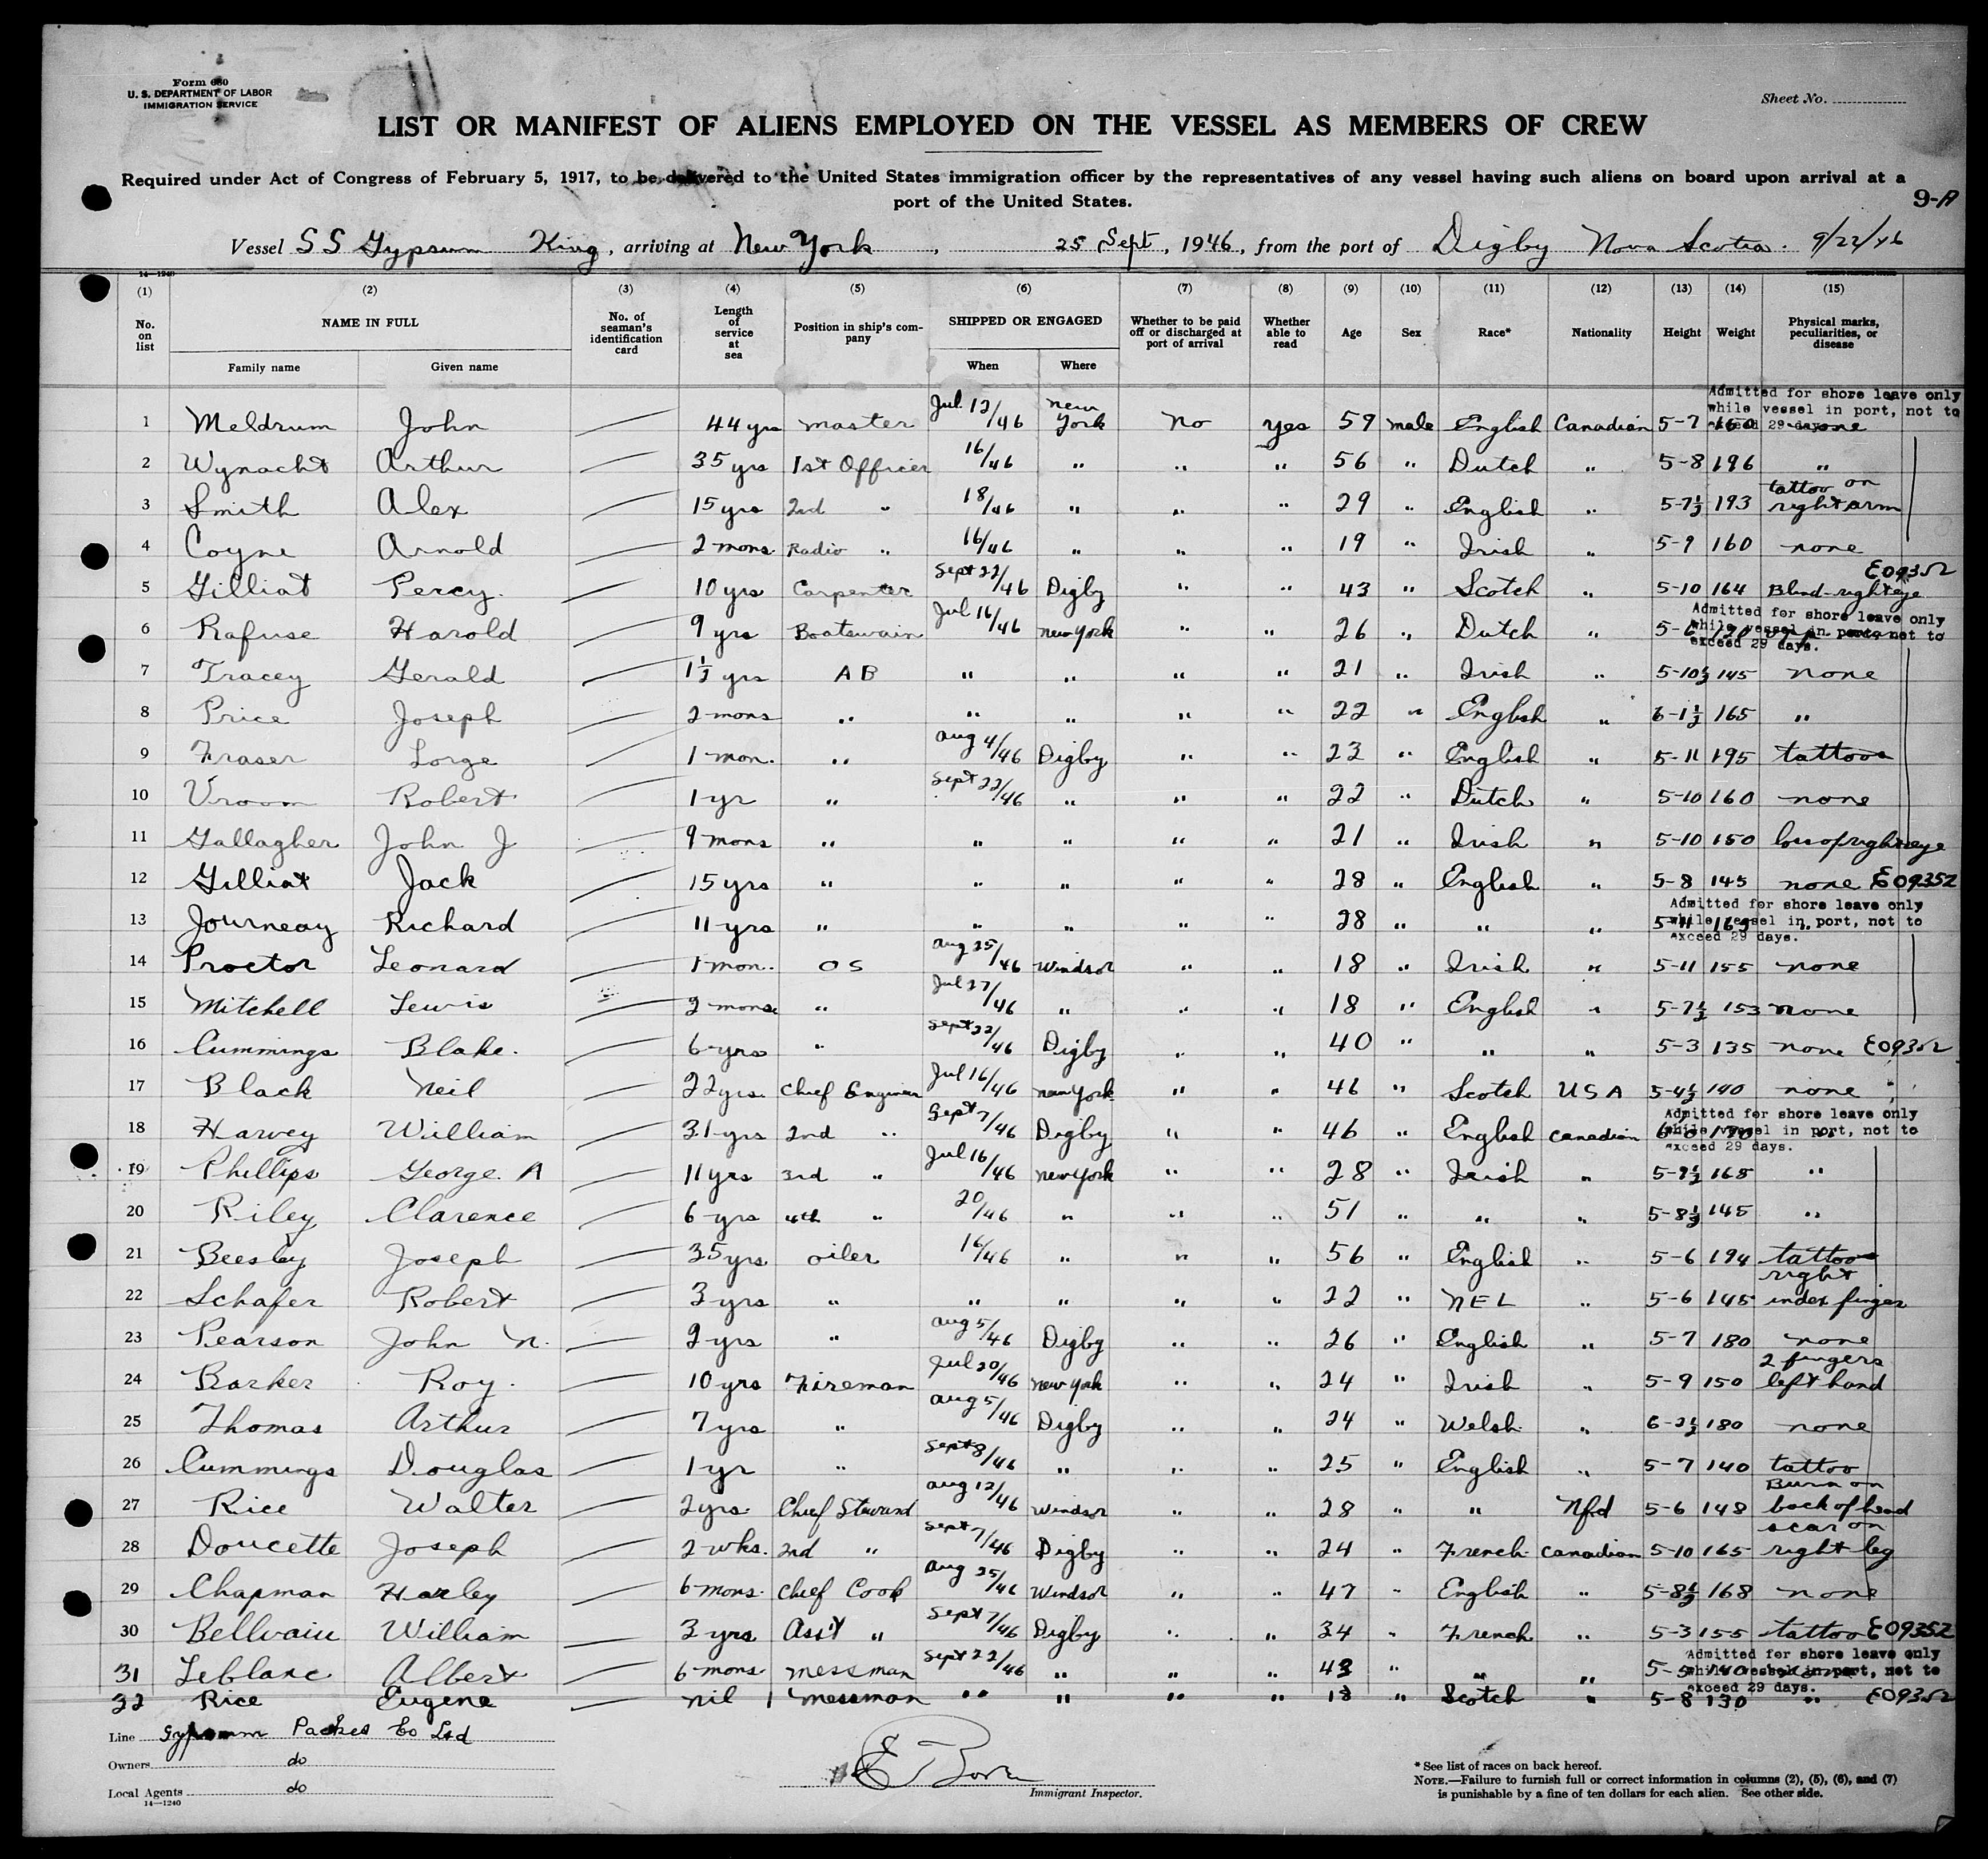 Form 680
U. S. DEPARTMENT OF LABOR
IMMIGRATION SERVICE
Sheet No.
LIST OR MANIFEST OF ALIENS EMPLOYED ON THE VESSEL AS MEMBERS OF CREW
Required under Act of Congress of February 5, 1917, to be delivered to the United States immigration officer by the representatives of any vessel having such aliens on board upon arrival at a
port of the United States.
9-A
Vessel SS Gypsum King, arriving at New York, 25 Sept, 1946, from the port of Digby Nova Scotia. 9/22/46
14-1240
(1) (2) (3) (4) (5) (6) (7) (8) (9) (10) (11) (12) (13) (14) (15)
No. on list NAME IN FULL Family name Given name No. of seaman's identification card Length of service at sea Position in ship's company SHIPPED OR ENGAGED When Where Whether to be paid off or discharged at port of arrival Whether able to read Age Sex Race* Nationality Height Weight Physical marks, peculiarities, or disease
Admitted for shore leave only while vessel in port, not to exceed 29 days.
1 Meldrum John — 44 yrs master Jul 12/46 New York No yes 59 male English Canadian 5-7 160 none
2 Wynacht Arthur — 35 yrs 1st Officer 16/46 " " " 56 " Dutch " 5-8 196 "
3 Smith Alex — 15 yrs 2nd " 18/46 " " " 29 " English " 5-7½ 193 tattoo on right arm
4 Coyne Arnold — 2 mons Radio " 16/46 " " " 19 " Irish " 5-9 160 none
5 Gilliat Percy. — 10 yrs Carpenter Sept 22/46 Digby " " 43 " Scotch " 5-10 164 Blind right eye E09352
Admitted for shore leave only while vessel in port, not to exceed 29 days.
6 Rafuse Harold — 9 yrs Boatswain Jul 16/46 New York " " 26 " Dutch " 5-6
7 Tracey Gerald — 1½ yrs AB " " " " 21 " Irish " 5-10½ 145 none
8 Price Joseph — 2 mons " " " " " 22 " English " 6-1½ 165 "
9 Fraser Lorge — 1 mon. " Aug 4/46 Digby " " 23 " English " 5-11 195 tattoos
10 Vroom Robert — 1 yr " Sept 22/46 " " " 22 " Dutch " 5-10 160 none
11 Gallagher John J — 9 mons " " " " " 21 " Irish " 5-10 150 loss of right eye
12 Gilliat Jack — 15 yrs " " " " " 28 " English " 5-8 145 none E09352
Admitted for shore leave only while vessel in port, not to exceed 29 days.
13 Journeay Richard — 11 yrs " " " " " 28 " " " 5-11 165 "
14 Proctor Leonard — 1 mon. OS Aug 25/46 Windsor " " 18 " Irish " 5-11 155 none
15 Mitchell Lewis — 2 mons " Jul 27/46 " " " 18 " English " 5-7½ 153 none
16 Cummings Blake. — 6 yrs " Sept 22/46 Digby " " 40 " " " 5-3 135 none E09352
17 Black Neil — 22 yrs. Chief Engineer Jul 16/46 New York " " 46 " Scotch USA 5-4½ 140 none
Admitted for shore leave only while vessel in port, not to exceed 29 days.
18 Harvey William — 31 yrs 2nd " Sept 7/46 Digby " " 46 " English Canadian 6-0 170 "
19 Phillips George. A — 11 yrs 3rd " Jul 16/46 New York " " 28 " Irish " 5-9½ 168 "
20 Riley Clarence — 6 yrs 4th " 20/46 " " " 51 " " " 5-8½ 145 "
21 Beesley Joseph — 35 yrs oiler 16/46 " " " 56 " English " 5-6 194 tattoos
22 Schafer Robert — 3 yrs " " " " " 22 " NEL " 5-6 145 right index finger
23 Pearson John N. — 2 yrs " Aug 5/46 Digby " " 26 " English " 5-7 180 none
24 Barker Roy. — 10 yrs Fireman Jul 20/46 New York " " 24 " Irish " 5-9 150 2 fingers left hand
25 Thomas Arthur — 7 yrs " Aug 5/46 Digby " " 24 " Welsh " 6-2½ 180 none
26 Cummings Douglas — 1 yr " Sept 8/46 " " " 25 " English " 5-7 140 tattoo
27 Rice Walter — 2 yrs. Chief Steward Aug 12/46 Windsor " " 28 " " Nfd 5-6 148 Burn on back of head
28 Doucette Joseph — 2 wks. 2nd " Sept 7/46 Digby " " 24 " French Canadian 5-10 165 scar on right leg
29 Chapman Harley — 6 mons. Chief Cook Aug 25/46 Windsor " " 47 " English " 5-8½ 168 none
30 William — 3 yrs Ass't " Sept 7/46 Digby " " 34 " French " 5-3 155 tattoo E09352
Admitted for shore leave only while vessel in port, not to exceed 29 days.
31 Leblanc Albert — 6 mons. messman Sept 22/46 " " " 43 " " " 5-5 140
32 Rice Eugene — nil messman " " " " 18 " Scotch " 5-8 130 " E09352
Line Gypsum Packet Co Ltd
Owners do
Local Agents do
14—1240
Immigrant Inspector.
* See list of races on back hereof.
NOTE.—Failure to furnish full or correct information in columns (2), (5), (6), and (7)
is punishable by a fine of ten dollars for each alien. See other side.